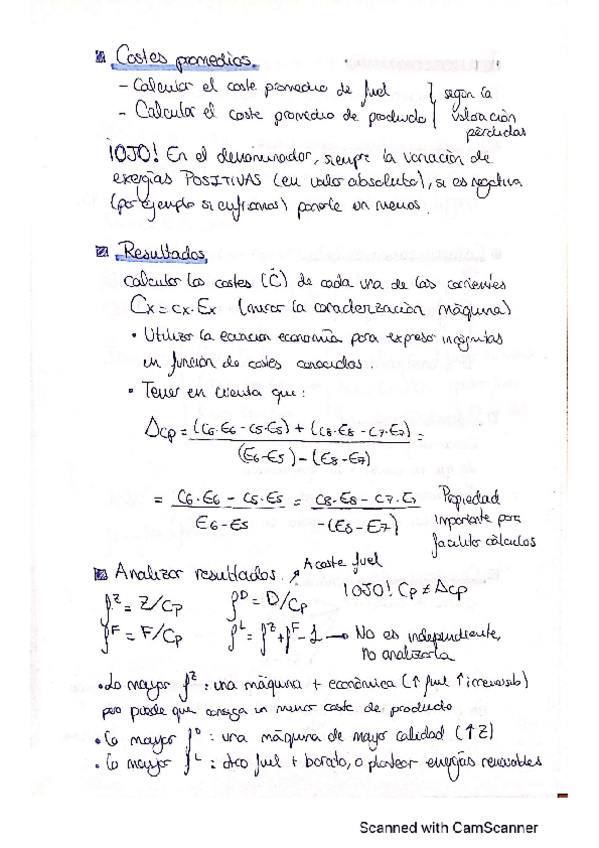 Costes promedios.
- Calcular el coste promedio de fuel } según la
- Calcular el coste promedio de producto valoración
pérdidas
¡OJO! En el denominador, siempre la variación de
exergías POSITIVAS (en valor absoluto), si es negativa
(por ejemplo si enfriamos) ponerle un menos.
Resultados
Calcular los costes (Ċ) de cada una de las corrientes
Cx = cx·Ex (mirar la caracterización máquina)
• Utilizar la ecuación economía para expresar incógnitas
en función de costes conocidos.
• Tener en cuenta que:
Δcp = (C6·E6 - C5·E5) + (C8·E8 - C7·E7) =
(E6-E5) - (E8-E7)
= C6·E6 - C5·E5 = C8·E8 - C7·E7 Propiedad
E6-E5 -(E8-E7) importante para
facilitar cálculos
Analizar resultados. ↗ A coste fuel
f^Z = Z/Cp f^D = D/Cp ¡OJO! Cp ≠ Δcp
f^F = F/Cp f^L = f^Z + f^F - 1 → No es independiente,
no analizarla
• Lo mayor f^Z : una máquina + económica (↑ fuel ↑ irreversib)
pero puede que consiga un menor coste de producto
• Lo mayor f^D : una máquina de mayor calidad (↑Z)
• Lo mayor f^L : otro fuel + barato, o plantear energías renovables
Scanned with CamScanner